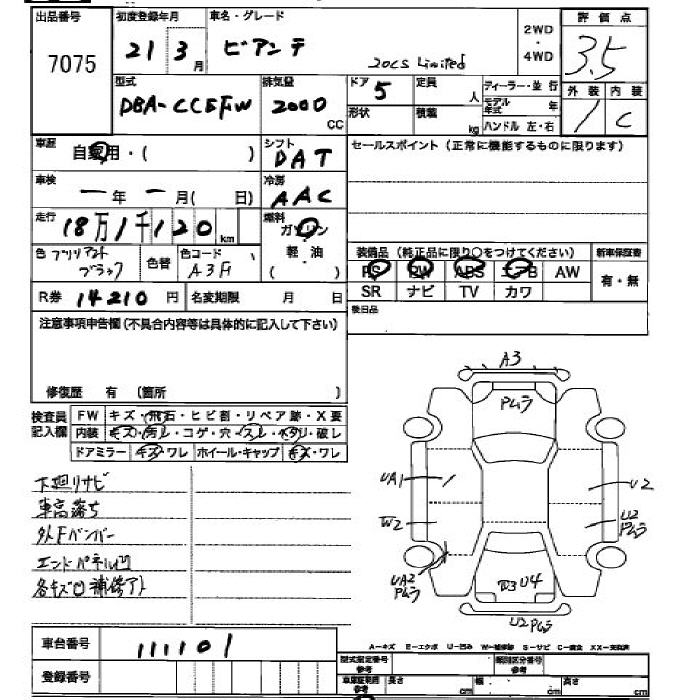 出品番号 初度登録年月 車名・グレード 2WD 評価点
7075 21 3月 ビアンテ 20CS Limited ・ 3.5
4WD
型式 排気量 ドア 5 定員 人 ディーラー・並行 外装 内装
DBA-CCEFW 2000 CC 形状 積載 kg モデル年式 年 1 C
ハンドル 左・右
車歴 自家用・( ) シフト DAT セールスポイント(正常に機能するものに限ります)
車検 ー年ー月( 日) 冷房 AAC
走行 18万1千120km 燃料 ガソリン
色 ブリリアントブラック 色替 色コード A3F 軽油 ( ) 装備品(純正品に限り○をつけてください) 新車保証書
PS PW ABS エアB AW 有・無
R券 14210円 名変期限 月 日 SR ナビ TV カワ
注意事項申告欄(不具合内容等は具体的に記入して下さい) 後日品
修復歴 有 (箇所 )
検査員記入欄 FW キズ・飛石・ヒビ割・リペア跡・X要
内装 キズ・汚レ・コゲ・穴・スレ・ヘタリ・破レ
ドアミラー キズ・ワレ ホイール・キャップ キズ・ワレ
A3
Pムラ
下廻りサビ UA1 U2
車高落ち
外Fバンパー W2 U2 Pムラ
エンドパネル凹
各キズ凹補修アト UA2 Pムラ B3 U4
U2 Pムラ
車台番号 111101
A-キズ E-エクボ U-凹み W-補修跡 S-サビ C-腐食 XX-交換済
登録番号 型式指定番号 類別区分番号
長さ cm 幅 cm 高さ cm